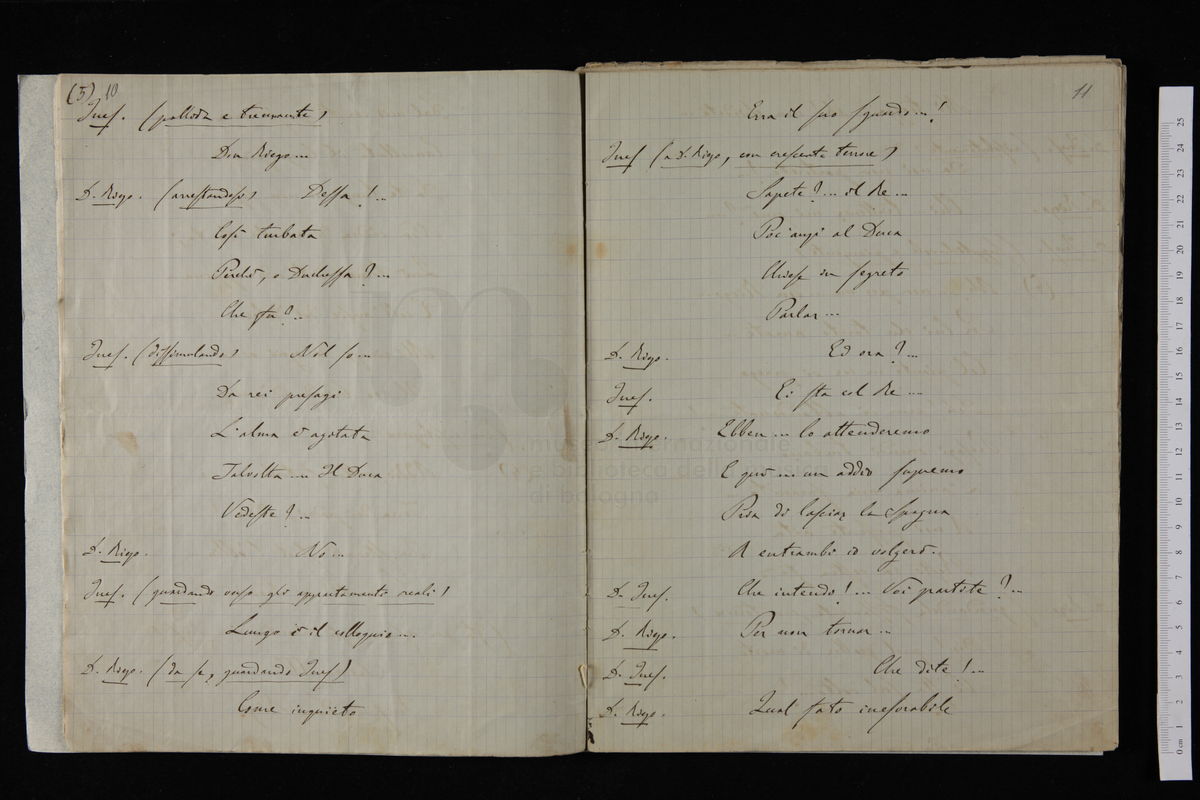 (5) 10
Ines. (pallida e tremante)
Don Diego...
D. Diego. (arrestandosi) Dessa!...
Così turbata
Perchè, o Duchessa?...
Che fu?..
Ines. (dissimulando) Nol so...
Da rei presagi
L'alma è agitata
Talvolta... Il Duca
Vedeste?...
D. Diego. No...
Ines. (guardando verso gli appartamenti reali)
Lungo è il colloquio....
D. Diego. (da se, guardando Ines)
Come inquieto
11
Erra il suo sguardo...!
Ines (a D. Diego, con crescente terrore)
Sapete?... il Re...
Poc'anzi al Duca
Chiese in segreto
Parlar...
D. Diego. Ed ora?...
Ines. Ei sta col Re....
D. Diego. Ebben... lo attenderemo
E qui... un addio supremo
Pria di lasciar la Spagna
A entrambi io volgerò.
D. Ines. Che intendo!... Voi partite?...
D. Diego. Per non tornar...
D. Ines. Che dite!...
D. Diego. Qual fato inesorabile
museo internazionale
e biblioteca della
di bologna
0 cm 1 2 3 4 5 6 7 8 9 10 11 12 13 14 15 16 17 18 19 20 21 22 23 24 25